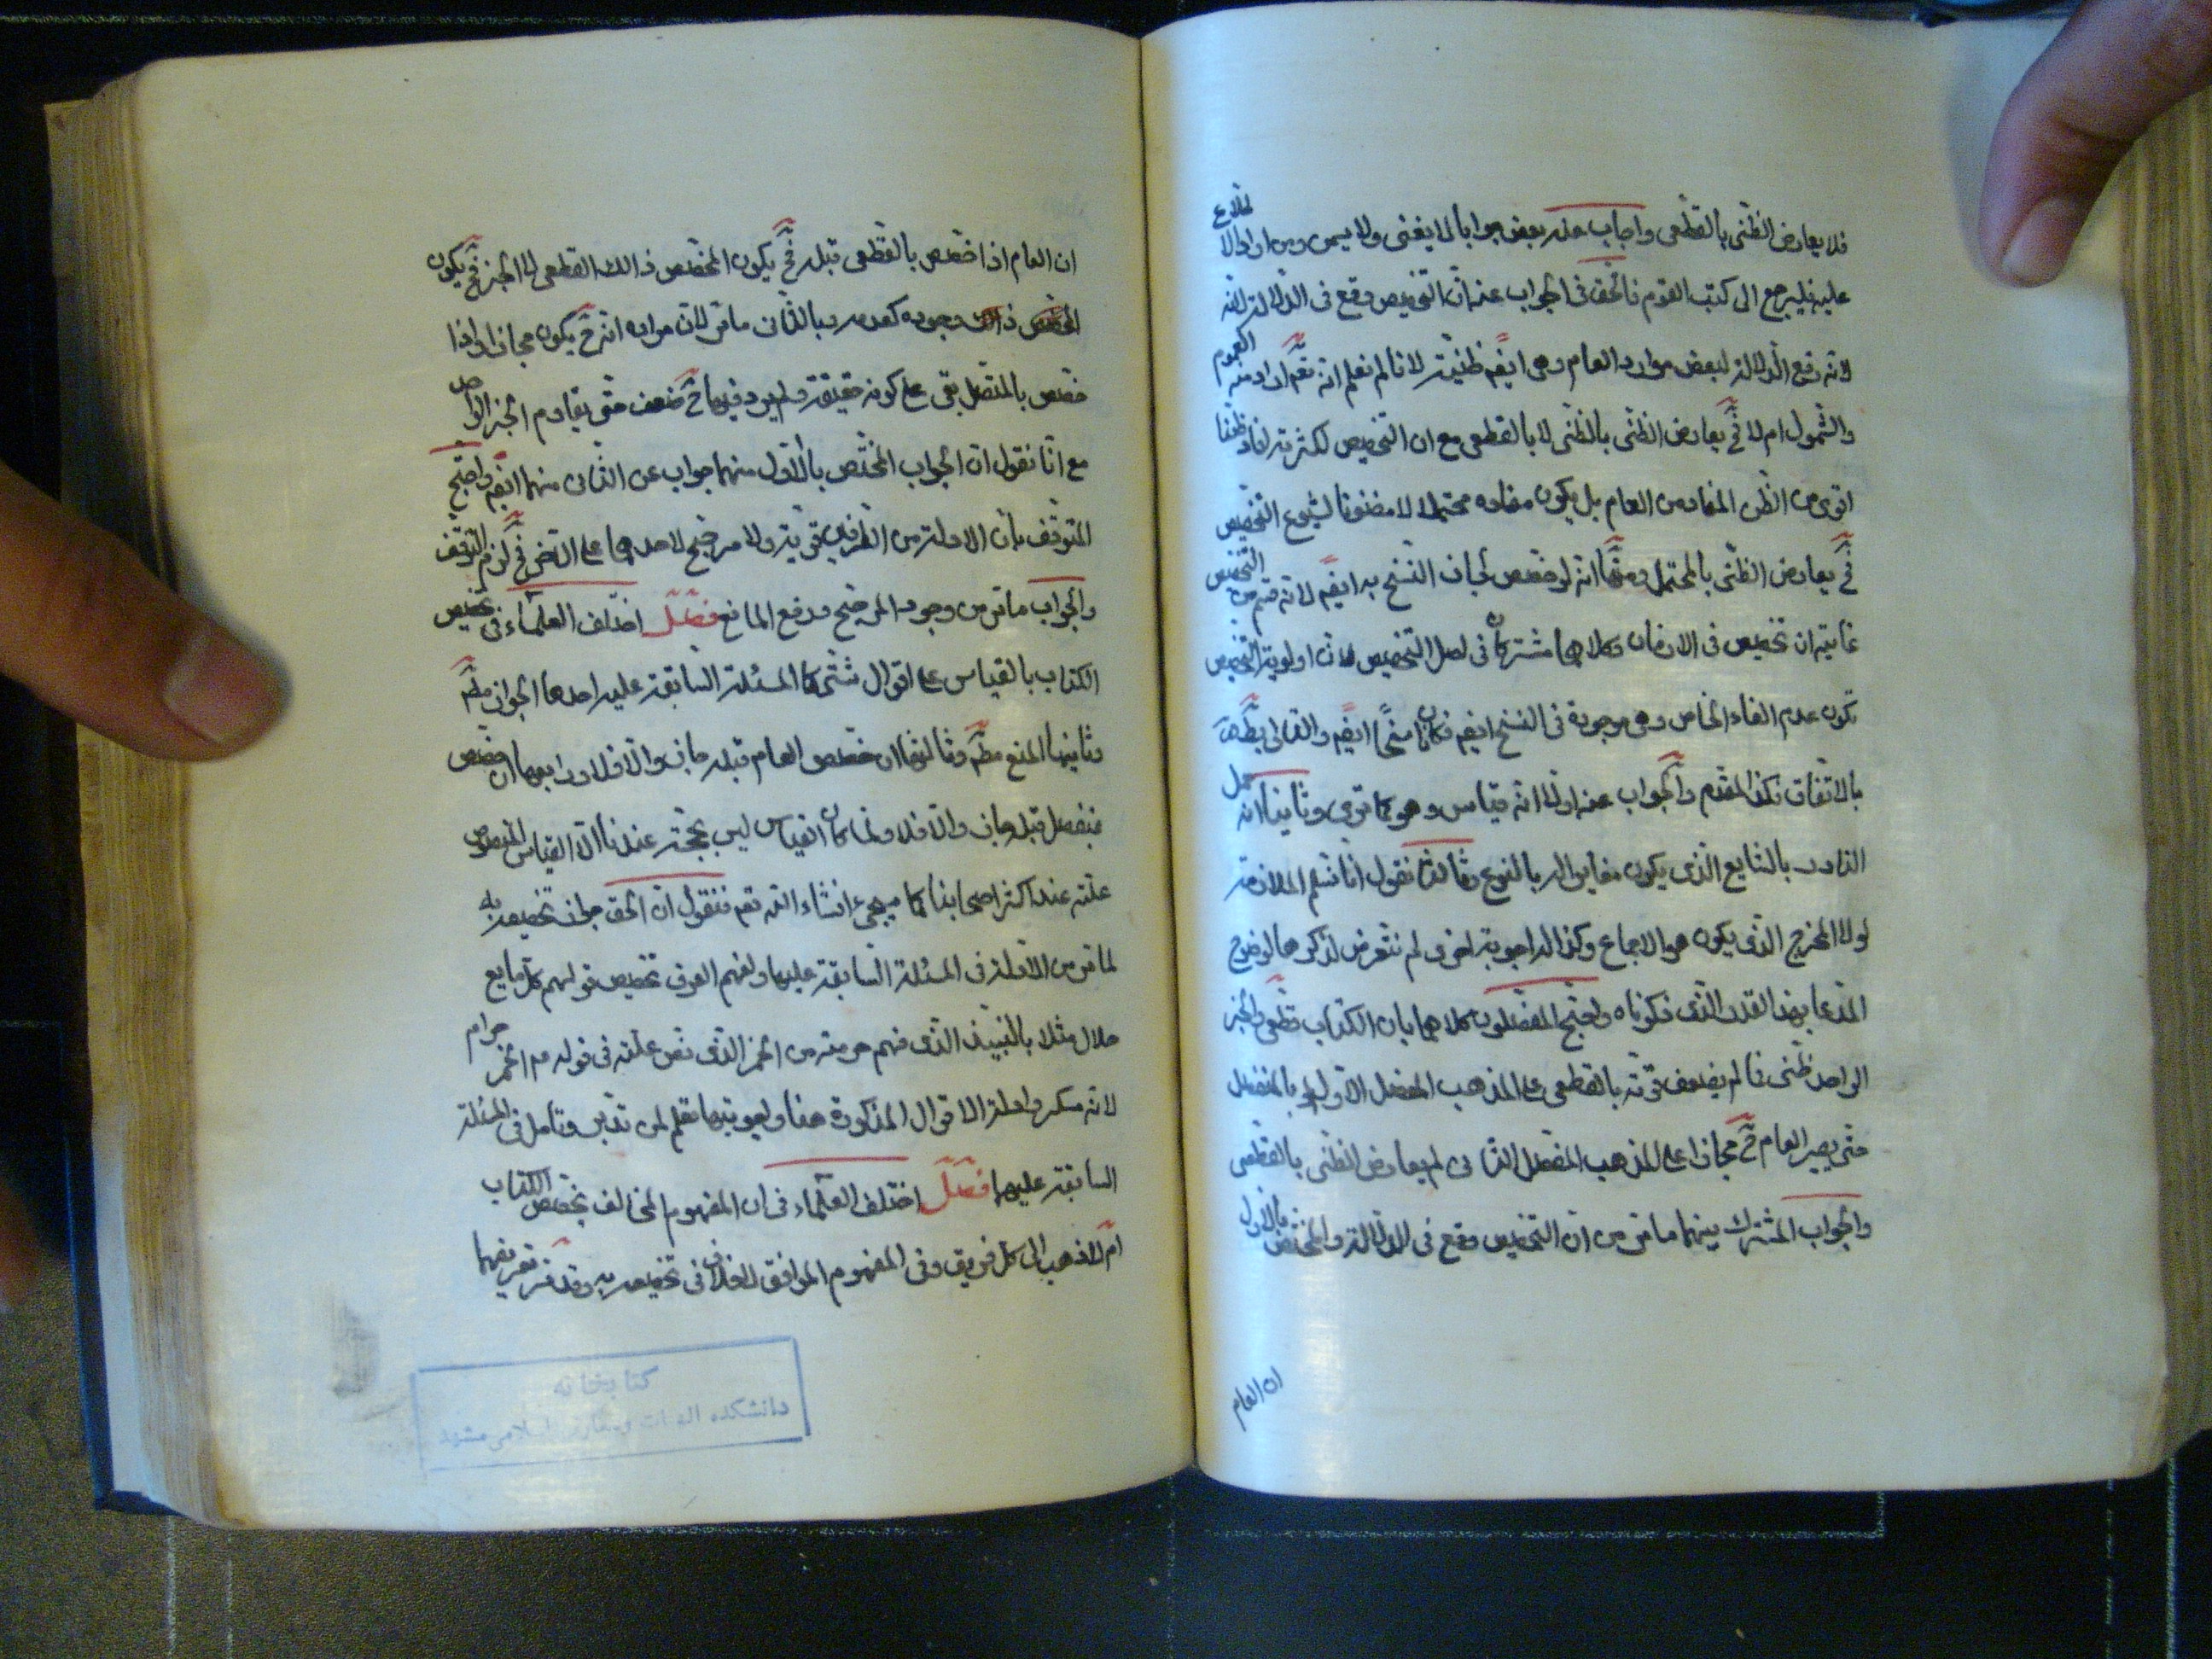 فلا يعارض الظنى بالقطعى واجاب عنه بعض جوابا لا يغنى ولا يسمن ومن اراد الاطلاع
عليه فليرجع الى كتب القوم فالحق فى الجواب عنه ان التخصيص وقع فى الدلالة لانه
لانه رفع الدلالة لبعض موارد العام وهى ايضم ظنية لانا لم نعلم انه تعم اراد منه العموم
والشمول ام لا فح يعارض الظنى بالظنى لا بالقطعى مع ان التخصيص لكثرته افاد ظنا
اقوى من الظن المفاد من العام بل يكون مفاده محتملا لا مظنونا لشيوع التخصيص
فح يعارض الظنى بالمحتمل ومنها انه لو خصص لجاز النسخ به ايضم لانه قسم من التخصيص
غايته ان تخصيص فى الازمان وكلاهما مشتركان فى اصل التخصيص لان اولوية التخصيص
تكون عدم الغاء الخاص وهى موجودة فى النسخ ايضم فكان ايضم والتالى بط
بالاتفاق فكذا المقدم والجواب عنه اولا انه قياس وهو كما ترى وثانيا انه حمل
النادر بالشايع الذى يكون مغايرا له بالنوع وثالثا نقول انا نسلم الملازمة
لولا المخرج الذى يكون هو الاجماع وكذا له اجوبة اخرى لم نتعرض لذكرها لوضوح
المدعا بهذا القدر الذى ذكرناه واحتج المفصلون كلاهما بان الكتاب قطعى والخبر
الواحد ظنى فما لم يضعف قوته بالقطعى على المذهب المفصل الاول او بالمنفصل
حتى يصير العام ح مجازا على المذهب المفصل الثانى لم يعارض الظنى بالقطعى
والجواب المشترك بينهما ما مر من ان التخصيص وقع فى الدلالة والمختص بالاول
ان العام
ان العام اذا خصص بالقطعى قبله فح يكون المخصص ذالك القطعى لا الخبز فح يكون
المخصص ذالك وجوده كعدمه وبالثانى ما مر لان مراده انه ح يكون مجازا واذا
خصص بالمتصل بقى على كونه حقيقة ولم يرد فيها ح ضعف حتى يقاوم الخبر الواحد
مع انا نقول ان الجواب المختص بالاول منهما جواب عن الثانى منهما ايضم واحتج
المتوقف بان الادلة من الطرفين قوية ولا مرجح لاحدهما على الاخر فح لزم التوقف
والجواب ما مر من وجود المرجح ورفع المانع فصل اختلف العلماء فى تخصيص
الكتاب بالقياس على اقوال شتى كما المسئلة السابقة عليه احدها الجواز مطم
وثانيها المنع مطم وثالثها ان خصص العام قبله جاز والا فلا ورابعها ان خصص
بمنفصل قبله جاز والا فلا ولما كان القياس ليس بحجة عندنا الا القياس المنصوص
علته عند اكثر اصحابنا كما سيجىء انشاء الله تعم فنقول ان الحق جواز تخصيصه به
لما مر من الادلة فى المسئلة السابقة عليها ولفهم العرف تخصيص قولهم كل مايع
حلال مثلا بالنبيذ الذى فهم حرمته من الخمر الذى نص علته فى قوله م الخمر حرام
لانه مسكر وادلة الاقوال المذكورة هنا واجوبتها تعلم لمن تدبر وتامل فى المسئلة
السابقة عليها فصل اختلف العلماء فى ان المفهوم المخالف يخصص الكتاب
ام لا ذهب الى كل فريق وفى المفهوم الموافق لا خلاف فى تخصيصه به وقد مر تعريفهما
كتابخانه
دانشكده الهيات ومعارف اسلامى مشهد